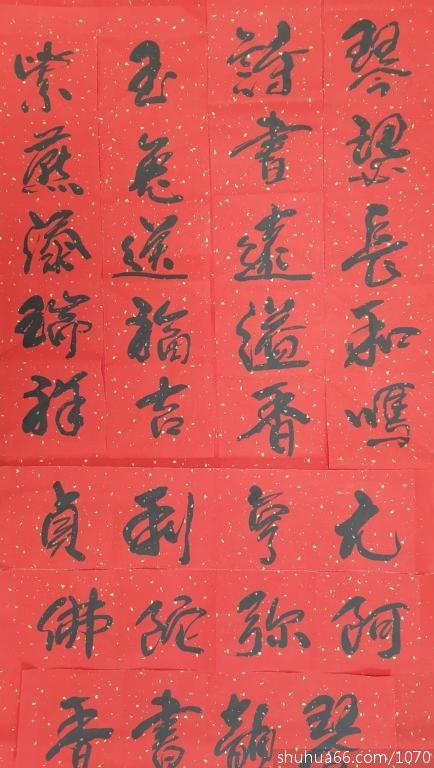 琴瑟長和鳴
詩書遠溢香
玉兔送福吉
紫燕添瑞祥
元亨利貞
阿弥陀佛
琴韻書香
shuhua66.com/1070